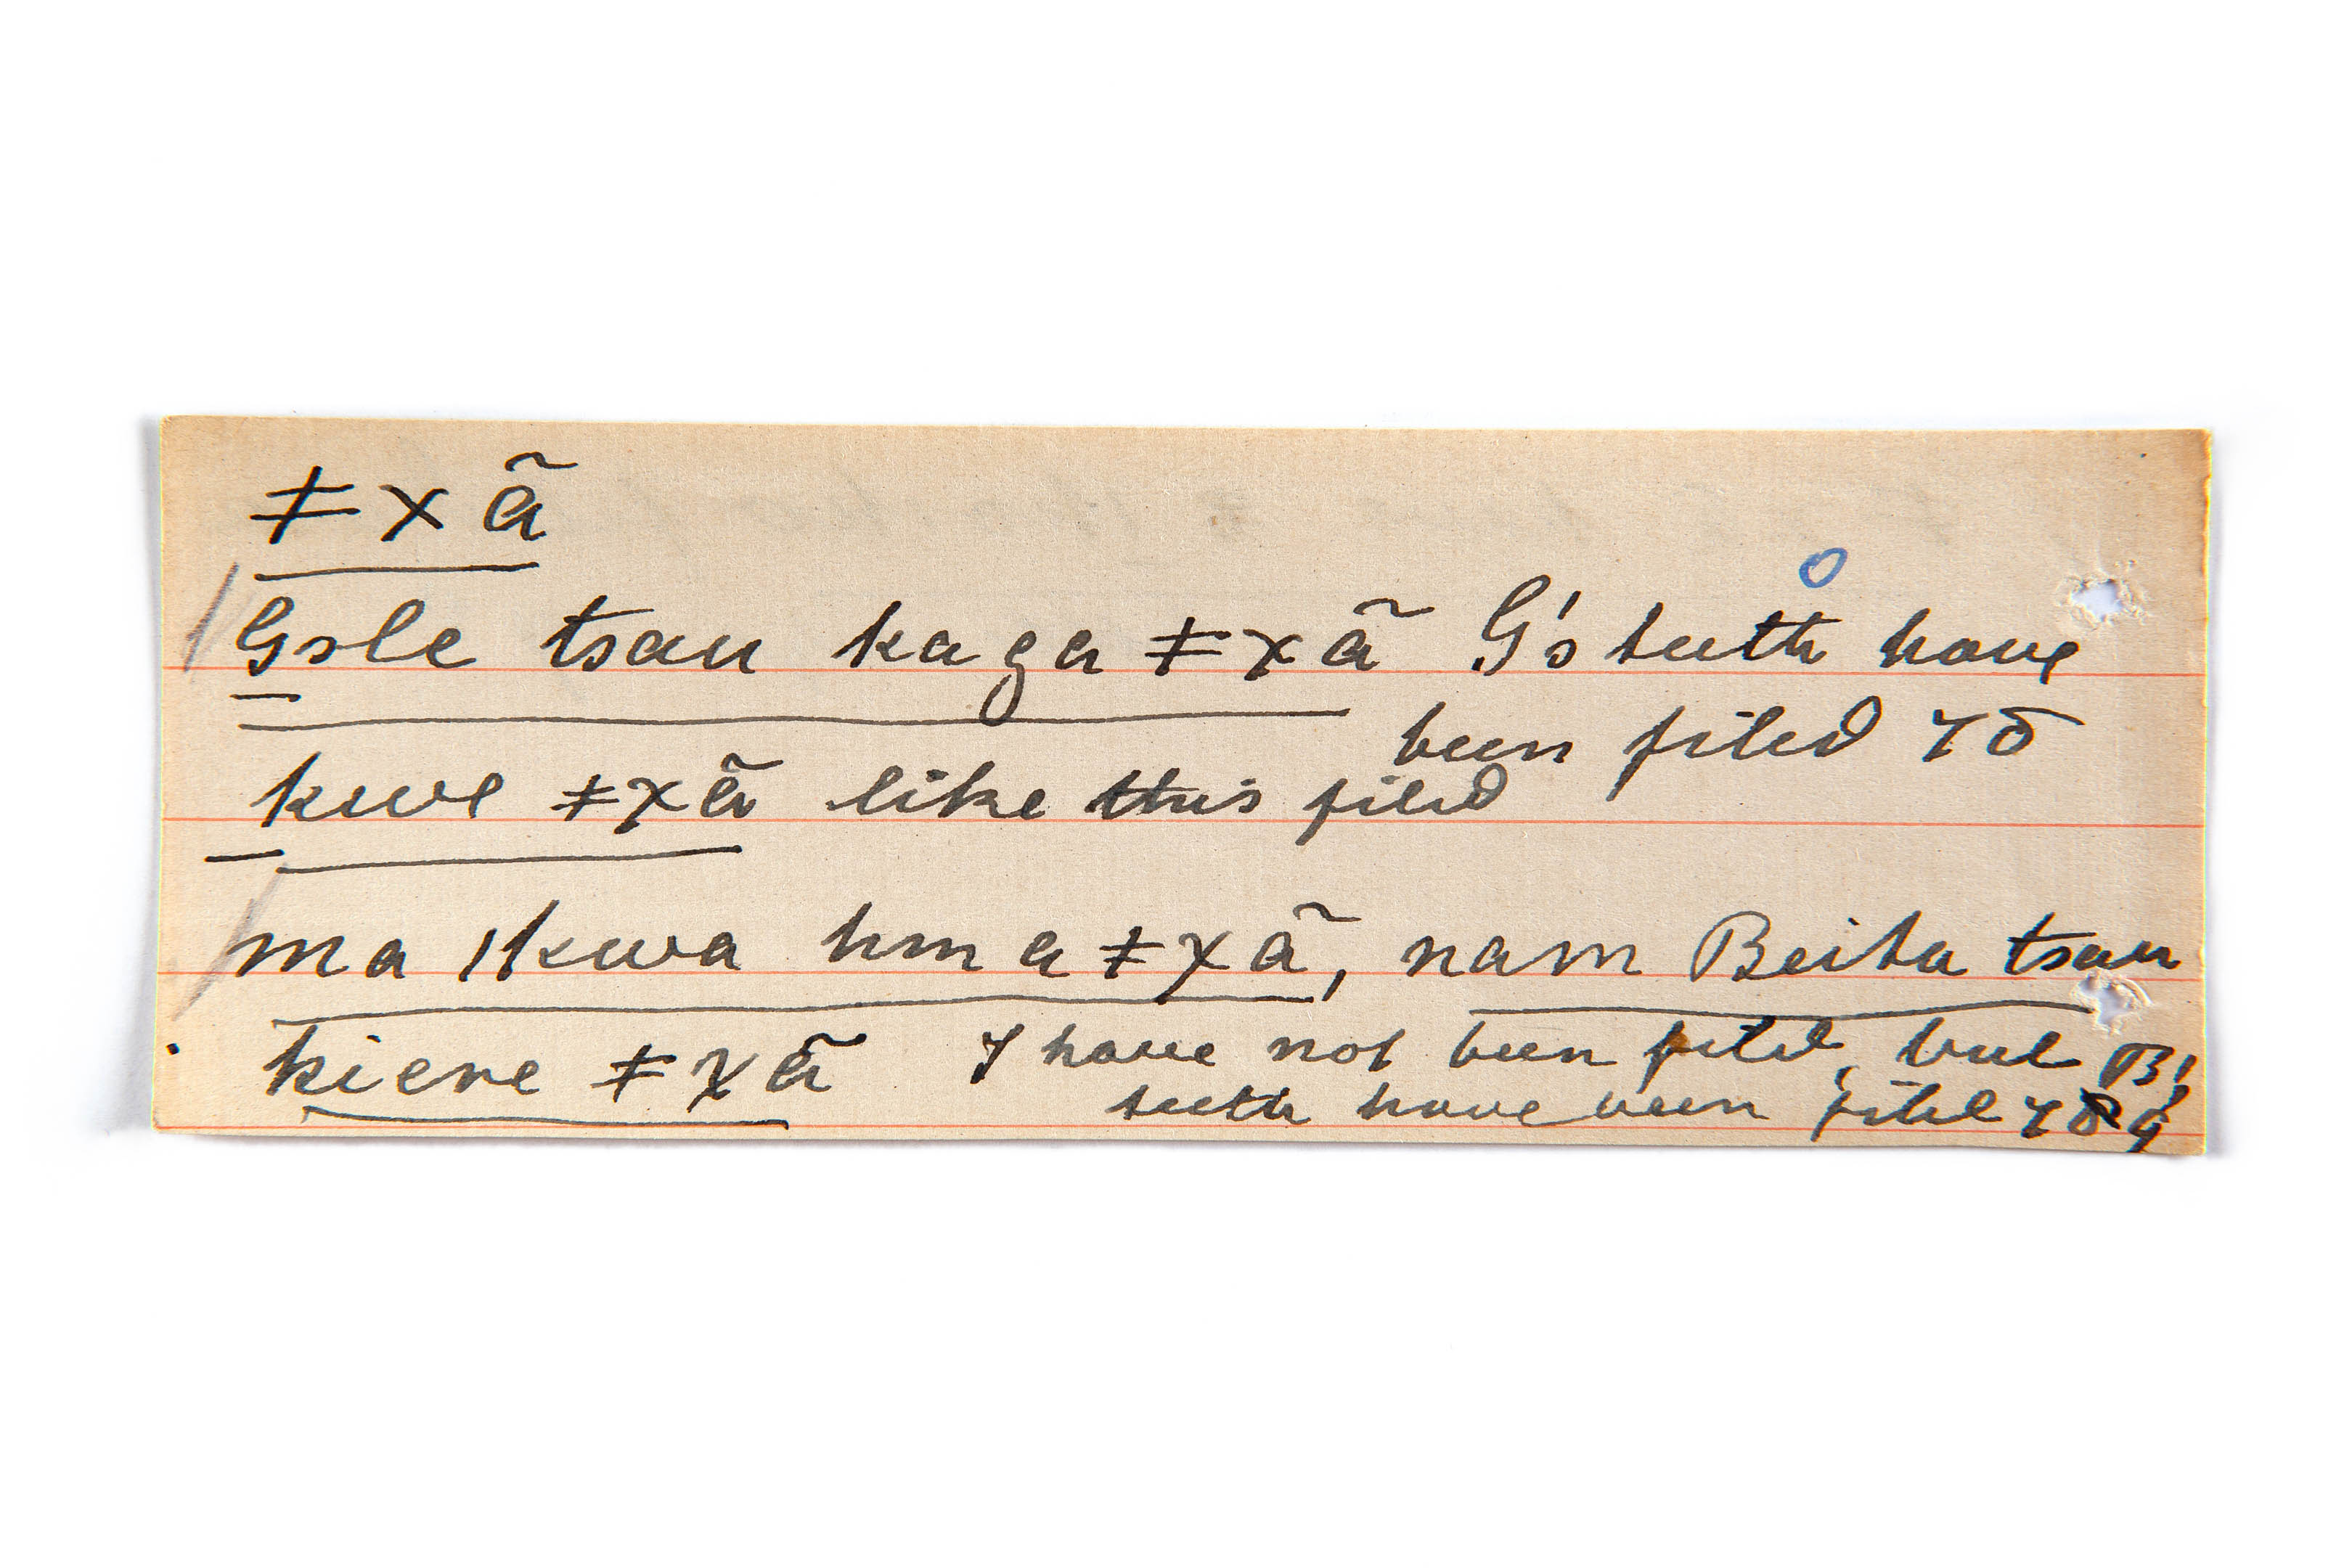 ǂxã
Gsle tsau kaga ǂxã G's teeth have
been filed 70
kwe ǂxã like this filed
ma ǀkwa hm a ǂxã, nam Beita tsau
kiere ǂxã I have not been filed, but B's
teeth have been filed